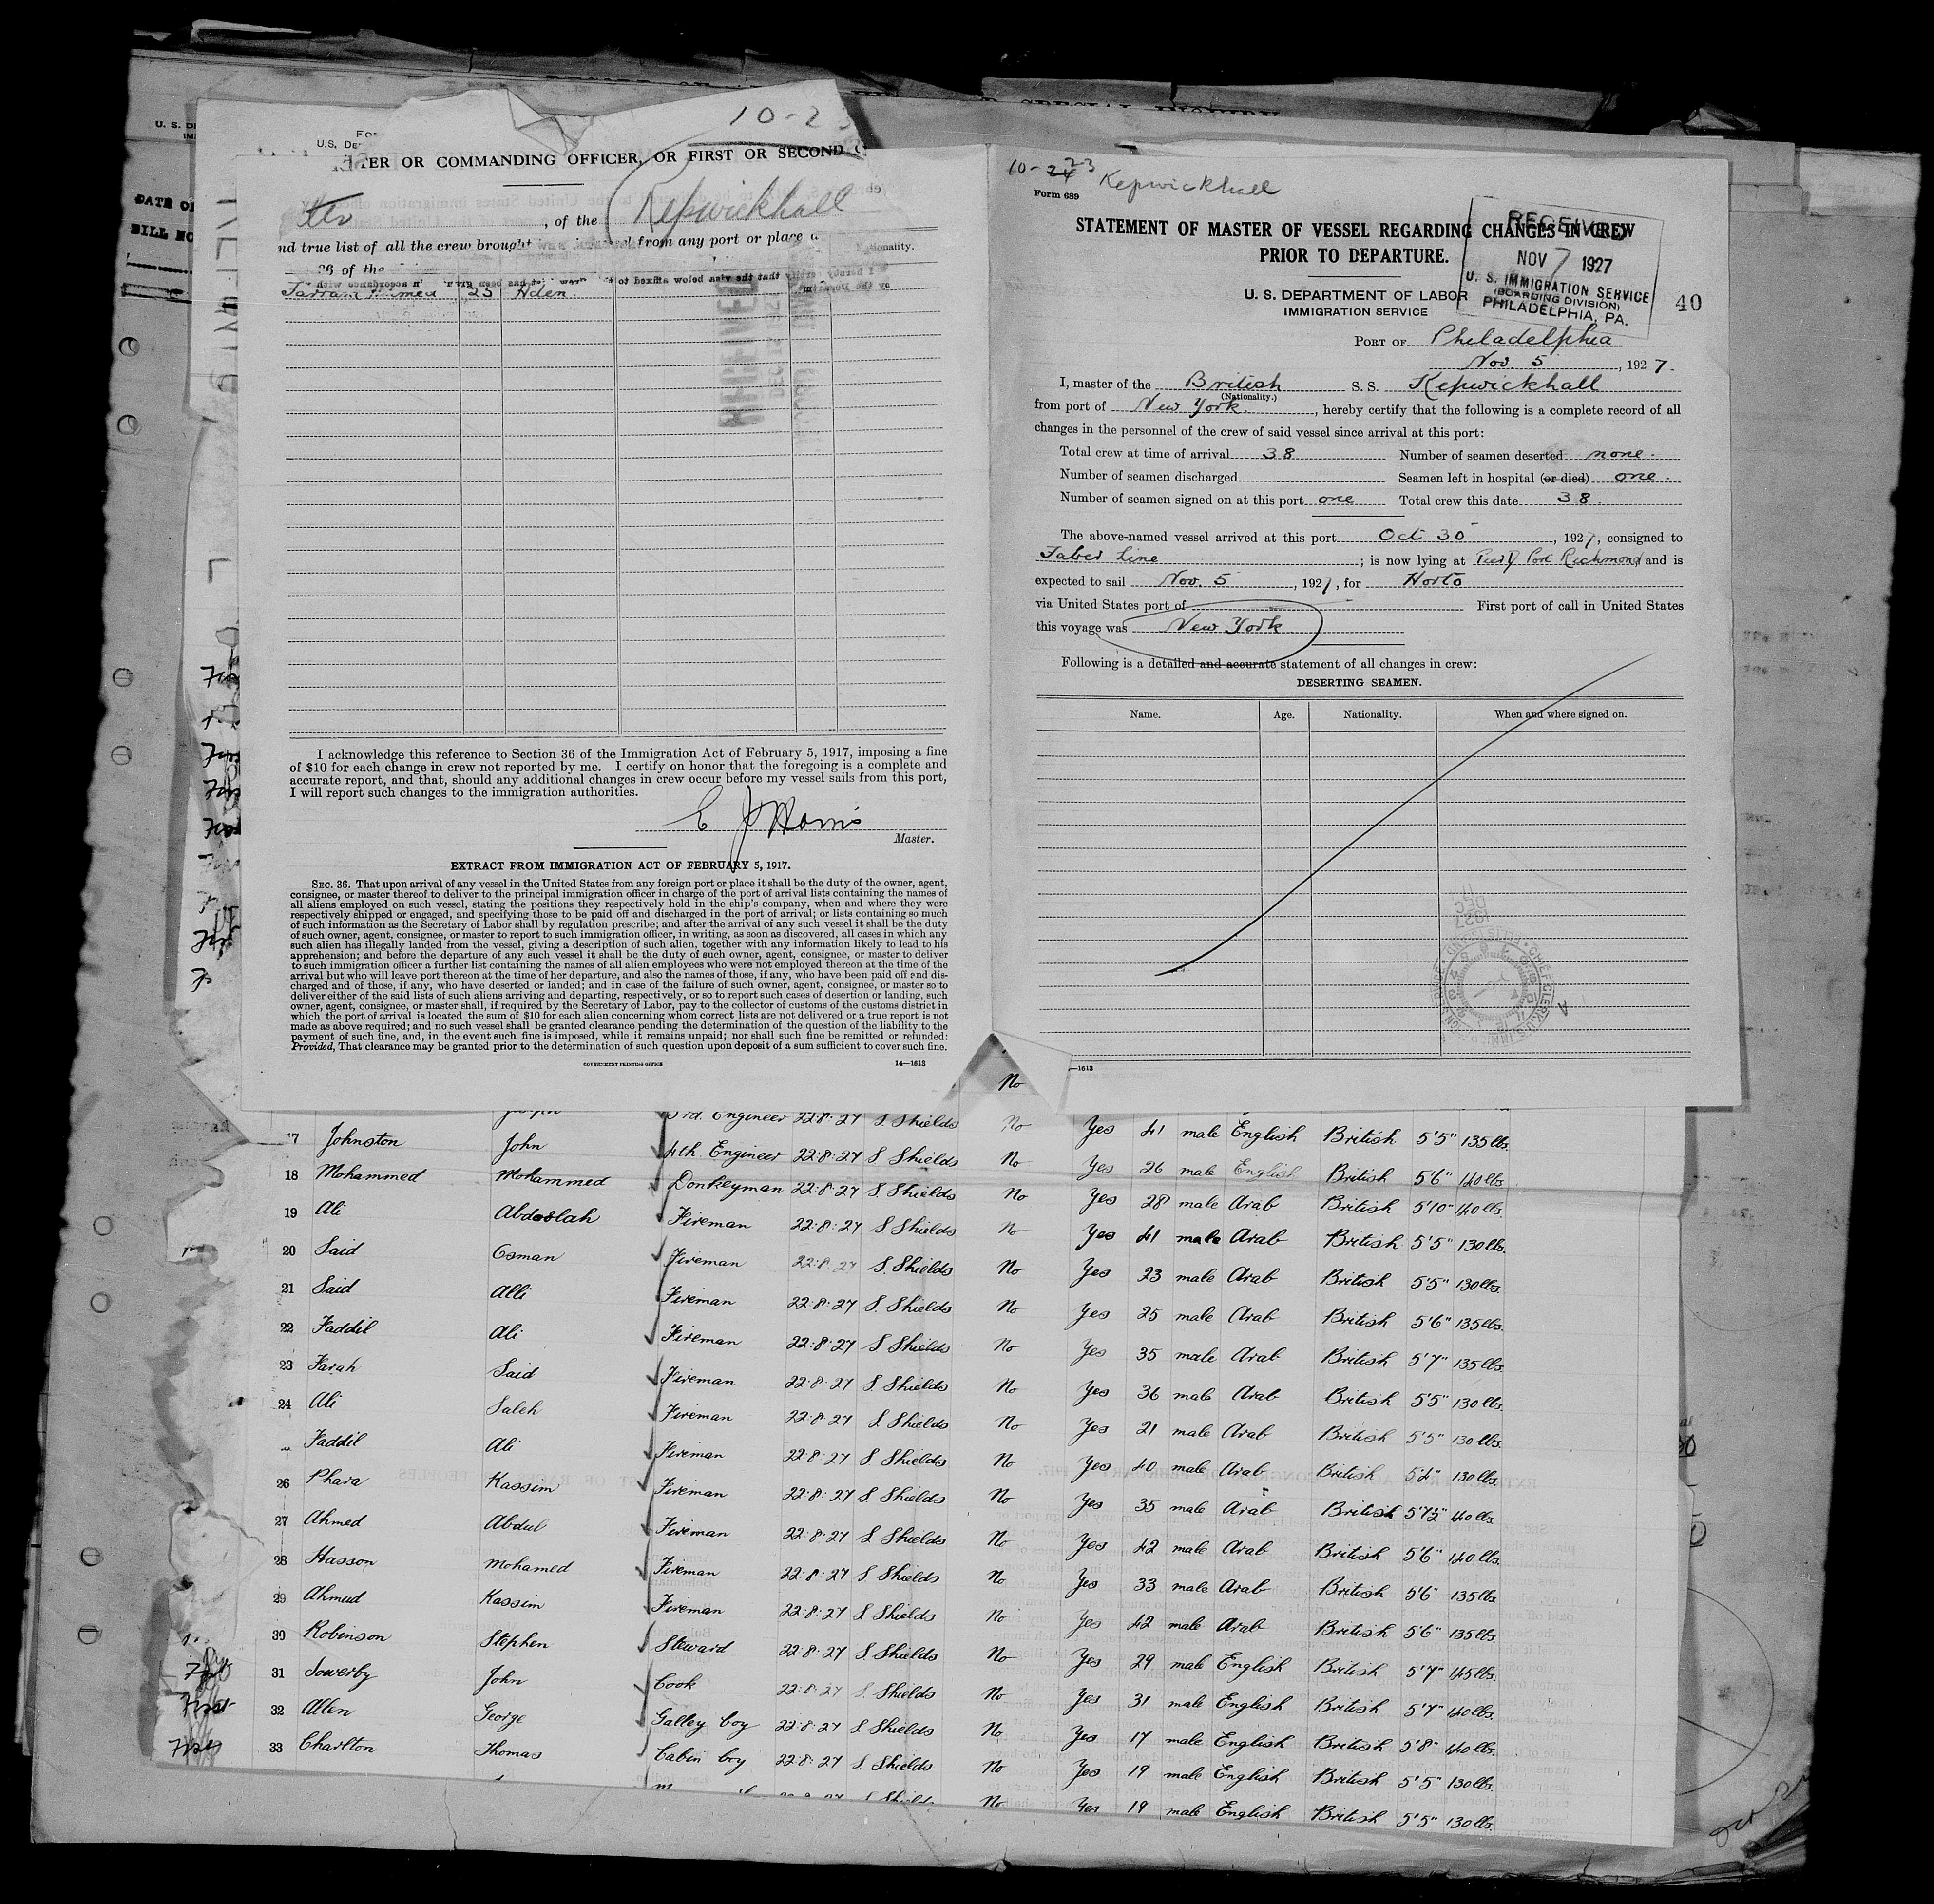 10-2
U.S. DE
TER OR COMMANDING OFFICER, OR FIRST OR SECOND
, of the Kepwickhall
nd true list of all the crew brought from any port or place
26 of the
25 Aden
I acknowledge this reference to Section 36 of the Immigration Act of February 5, 1917, imposing a fine
of $10 for each change in crew not reported by me. I certify on honor that the foregoing is a complete and
accurate report, and that, should any additional changes in crew occur before my vessel sails from this port,
I will report such changes to the immigration authorities.
Master.
EXTRACT FROM IMMIGRATION ACT OF FEBRUARY 5, 1917.
SEC. 36. That upon arrival of any vessel in the United States from any foreign port or place it shall be the duty of the owner, agent,
consignee, or master thereof to deliver to the principal immigration officer in charge of the port of arrival lists containing the names of
all aliens employed on such vessel, stating the positions they respectively hold in the ship's company, when and where they were
respectively shipped or engaged, and specifying those to be paid off and discharged in the port of arrival; or lists containing so much
of such information as the Secretary of Labor shall by regulation prescribe; and after the arrival of any such vessel it shall be the duty
of such owner, agent, consignee, or master to report to such immigration officer, in writing, as soon as discovered, all cases in which any
such alien has illegally landed from the vessel, giving a description of such alien, together with any information likely to lead to his
apprehension; and before the departure of any such vessel it shall be the duty of such owner, agent, consignee, or master to deliver
to such immigration officer a further list containing the names of all alien employees who were not employed thereon at the time of the
arrival but who will leave port thereon at the time of her departure, and also the names of those, if any, who have been paid off and dis-
charged and of those, if any, who have deserted or landed; and in case of the failure of such owner, agent, consignee, or master so to
deliver either of the said lists of such aliens arriving and departing, respectively, or so to report such cases of desertion or landing, such
owner, agent, consignee, or master shall, if required by the Secretary of Labor, pay to the collector of customs of the customs district in
which the port of arrival is located the sum of $10 for each alien concerning whom correct lists are not delivered or a true report is not
made as above required; and no such vessel shall be granted clearance pending the determination of the question of the liability to the
payment of such fine, and, in the event such fine is imposed, while it remains unpaid; nor shall such fine be remitted or refunded:
Provided, That clearance may be granted prior to the determination of such question upon deposit of a sum sufficient to cover such fine.
GOVERNMENT PRINTING OFFICE 14—1613
10-23 Kepwickhall
Form 689
STATEMENT OF MASTER OF VESSEL REGARDING CHANGES IN CREW
PRIOR TO DEPARTURE.
RECEIVED
NOV 7 1927
U. S. IMMIGRATION SERVICE
(BOARDING DIVISION)
PHILADELPHIA, PA.
U. S. DEPARTMENT OF LABOR
IMMIGRATION SERVICE
40
PORT OF Philadelphia
Nov. 5, 1927.
I, master of the British S. S. Kepwickhall
(Nationality.)
from port of New York, hereby certify that the following is a complete record of all
changes in the personnel of the crew of said vessel since arrival at this port:
Total crew at time of arrival 38 Number of seamen deserted none.
Number of seamen discharged Seamen left in hospital (or died) one.
Number of seamen signed on at this port one Total crew this date 38.
The above-named vessel arrived at this port Oct 30, 1927, consigned to
Line; is now lying at Port Richmond and is
expected to sail Nov. 5, 1927, for
via United States port of First port of call in United States
this voyage was New York
Following is a detailed and accurate statement of all changes in crew:
DESERTING SEAMEN.
Name. Age. Nationality. When and where signed on.
—1613
No
3rd. Engineer 22:8:27 S. Shields No Yes 41 male English British 5'5" 135 lbs.
17 Johnston John 4th. Engineer 22:8:27 S Shields No Yes 26 male English British 5'6" 140 lbs.
18 Mohammed Mohammed Donkeyman 22:8:27 S. Shields No Yes 28 male Arab British 5'10" 140 lbs.
19 Ali Abdoolah Fireman 22:8:27 S Shields No Yes 41 male Arab British 5'5" 130 lbs.
20 Said Osman Fireman 22:8:27 S. Shields No Yes 23 male Arab British 5'5" 130 lbs.
21 Said Alli Fireman 22:8:27 S. Shields No Yes 25 male Arab British 5'6" 135 lbs.
22 Faddil Ali Fireman 22:8:27 S Shields No Yes 35 male Arab British 5'7" 135 lbs.
23 Farah Said Fireman 22:8:27 S Shields No Yes 36 male Arab British 5'5" 130 lbs.
24 Ali Saleh Fireman 22:8:27 S Shields No Yes 21 male Arab British 5'5" 130 lbs.
Faddil Ali Fireman 22:8:27 S. Shields No Yes 40 male Arab British 5'4" 130 lbs.
26 Phara Kassim Fireman 22:8:27 S Shields No Yes 35 male Arab British 5'7½" 140 lbs.
27 Ahmed Abdul Fireman 22:8:27 S Shields No Yes 42 male Arab British 5'6" 140 lbs.
28 Hasson Mohamed Fireman 22:8:27 S Shields No Yes 33 male Arab British 5'6" 135 lbs.
29 Ahmud Kassim Fireman 22:8:27 S Shields No Yes 42 male Arab British 5'6" 135 lbs.
30 Robinson Stephen Steward 22:8:27 S. Shields No Yes 29 male English British 5'7" 145 lbs.
31 Sowerby John Cook 22:8:27 S. Shields No Yes 31 male English British 5'7" 140 lbs.
32 Allen George Galley boy 22:8:27 S. Shields No Yes 17 male English British 5'8" 140 lbs.
33 Charlton Thomas Cabin boy 22:8:27 S. Shields No Yes 19 male English British 5'5" 130 lbs.
No Yes 19 male English British 5'5" 130 lbs.